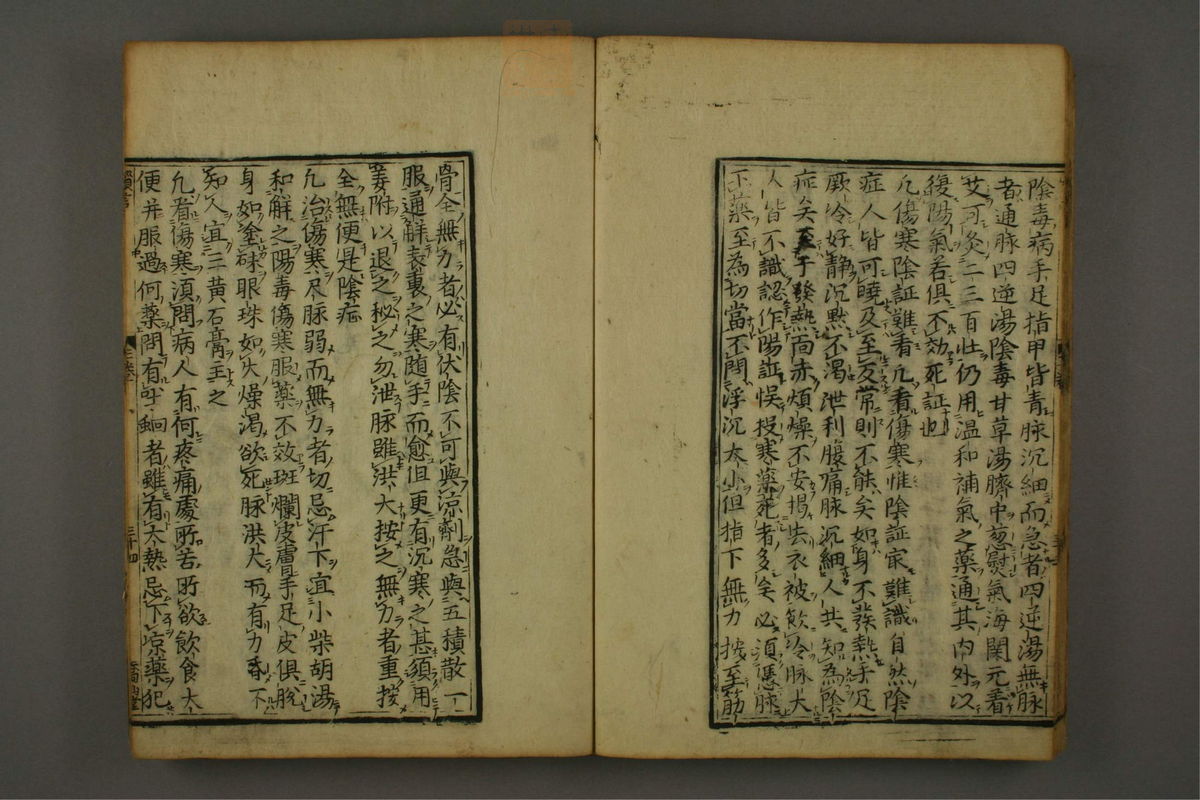 陰毒病手足指甲皆青脉沉細而急者四逆湯無脉
者通脉四逆湯陰毒甘草湯臍中葱熨氣海関元着
艾可灸二三百壮仍用温和補氣之藥通其内外以
復陽氣若俱不効死証也
凡傷寒陰証難看凡看傷寒惟陰証家難識自然陰
症人皆可曉及至反常則不能矣如身不發熱手足
厥冷好静沉默不渴泄利腹痛脉沉細人共知為陰
症矣至于發熱面赤煩燥不安揭去衣被飲冷脉大
人皆不識認作陽証悞投寒藥死者多矣必須憑脉
下藥至為切當不問浮沉大小但指下無力按至筋
骨全無力者必有伏陰不可與凉劑急與五積散一
服通解表裏之寒随手而愈但更有沉寒之甚須用
姜附以退之秘之勿泄脉雖洪大按之無力者重按
全無便是陰症
凡治傷寒尽脉弱而無力者切忌汗下宜小柴胡湯
和解之陽毒傷寒服藥不效斑爛皮膚手足皮俱脱
身如塗硃眼珠如火燥渴欲死脉洪大而有力昏不
知人宜三黄石膏主之
凡看傷寒須問病人有何疼痛處所苦所欲飲食大
便并服過何藥問有吐蛔者雖有大熱忌下凉藥犯
三十四